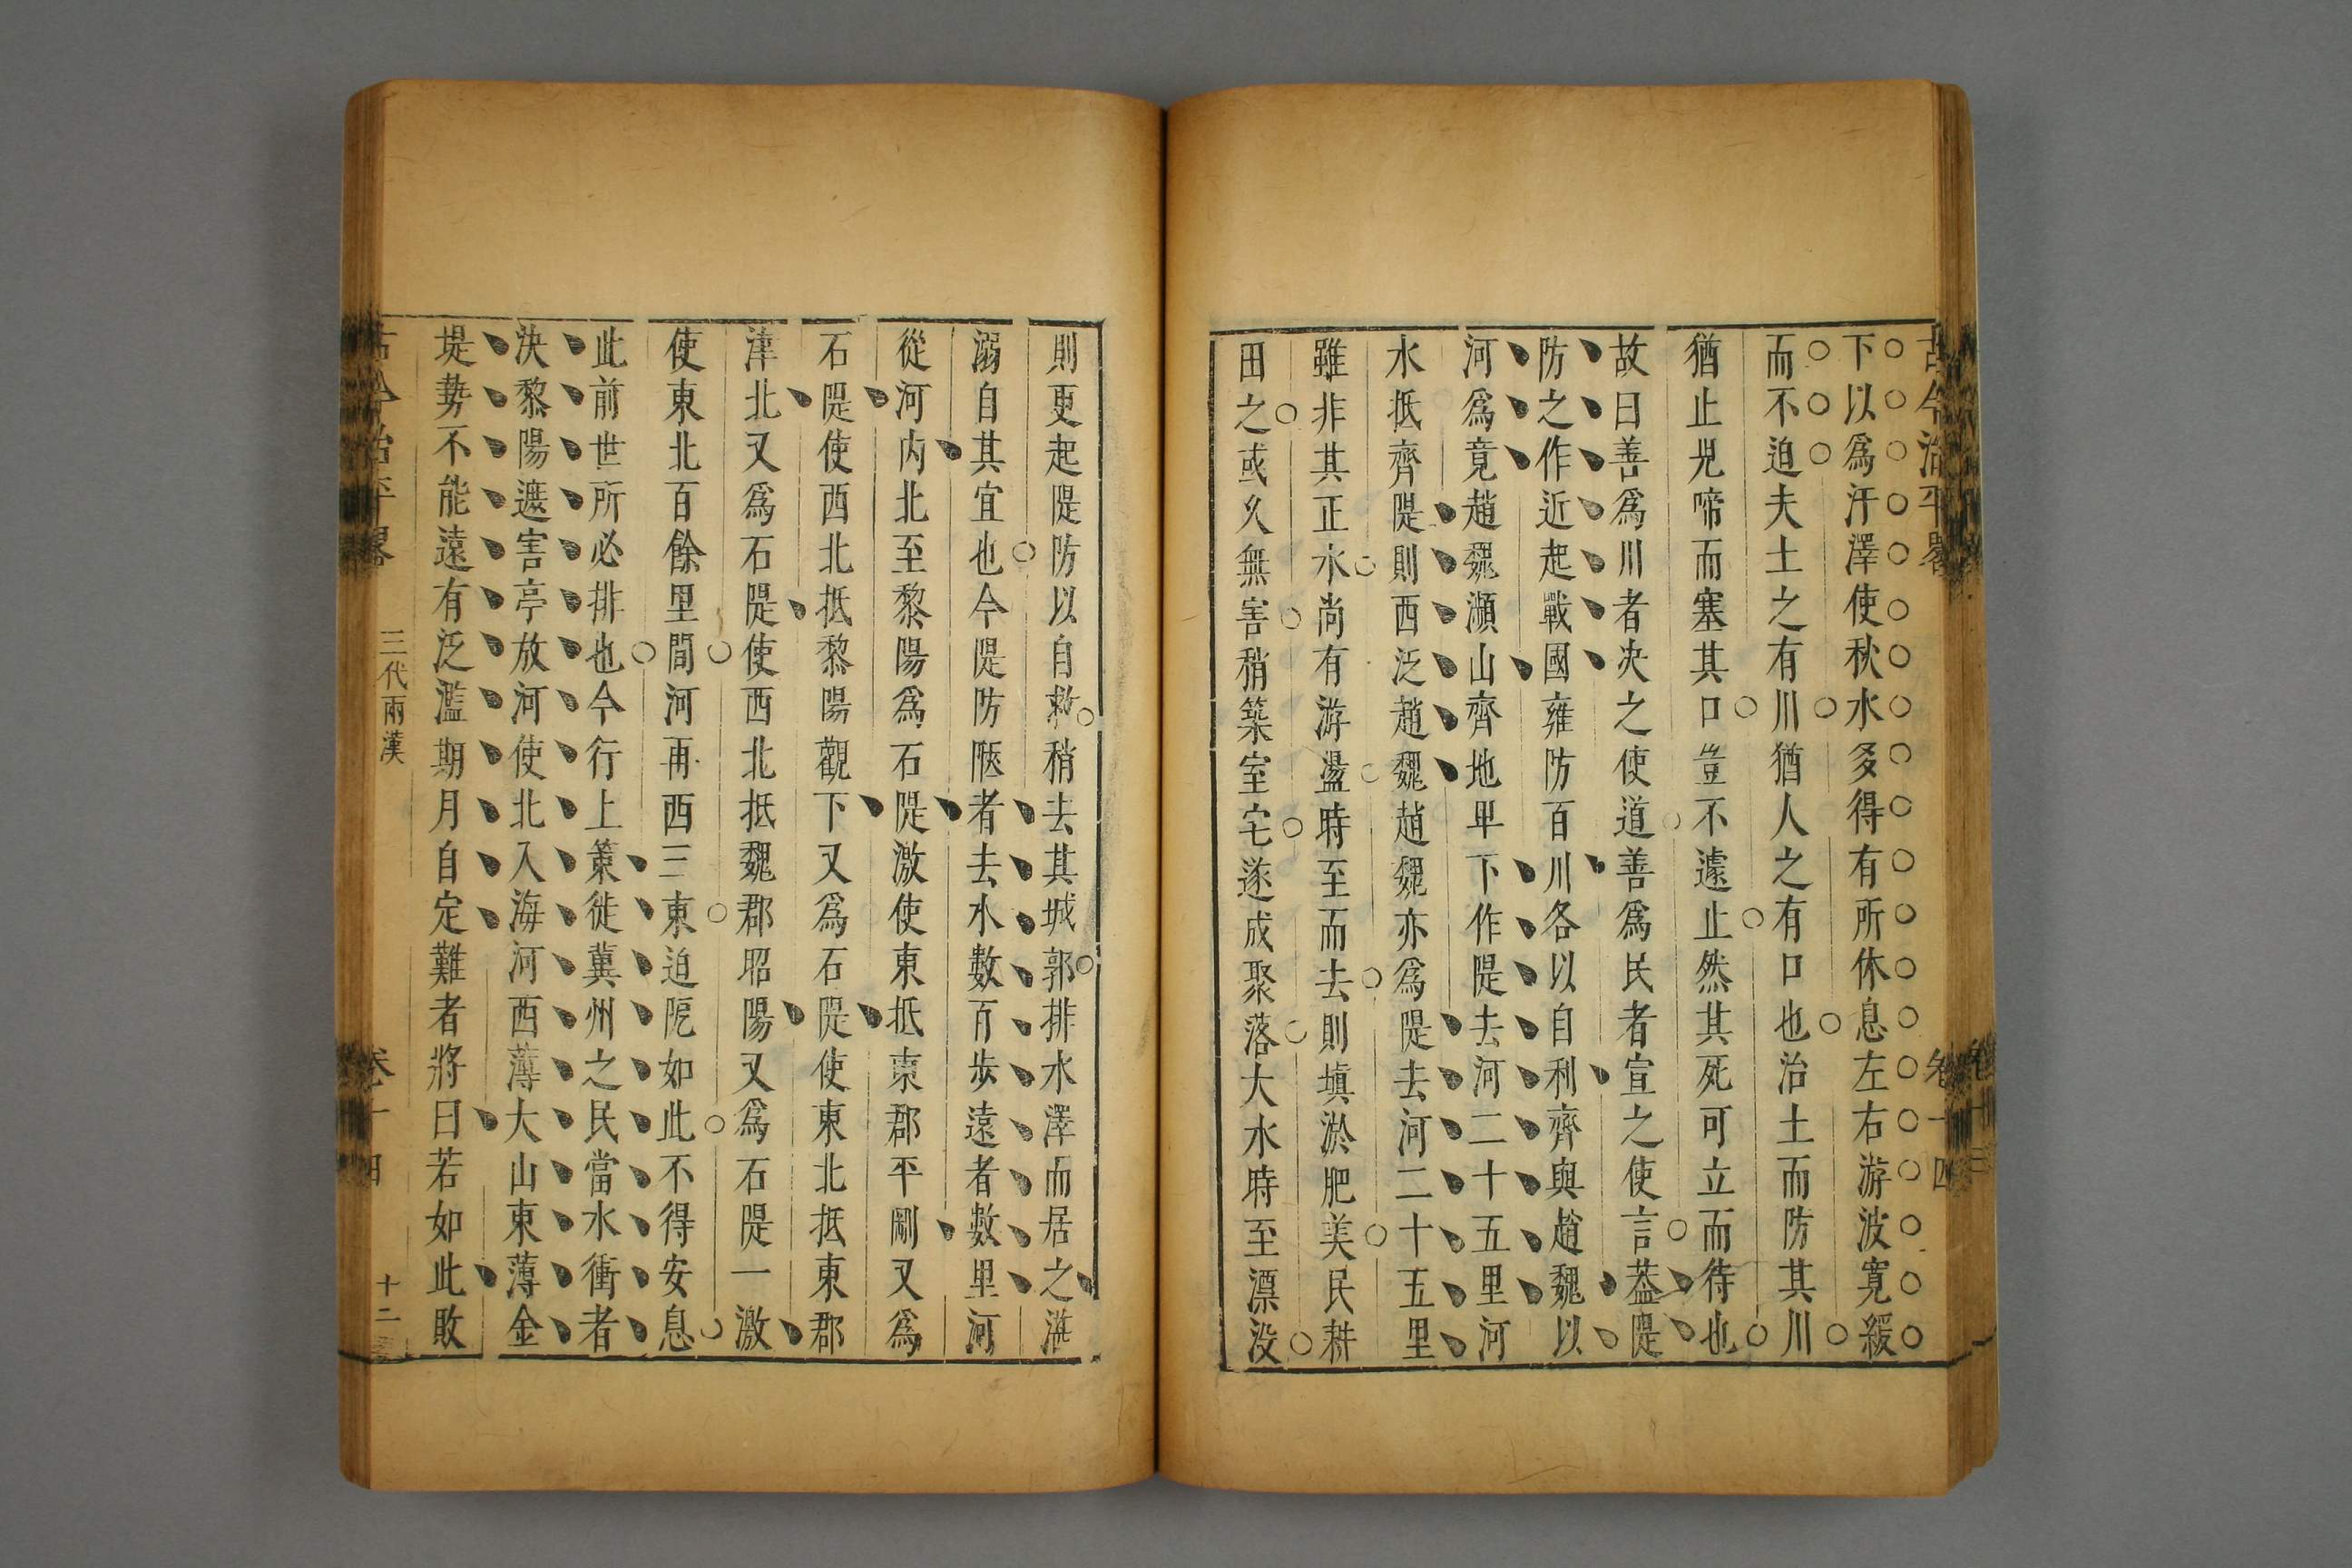 古今治平畧
卷十四
下以爲汙澤使秋水多得有所休息左右游波寬緩
而不迫夫土之有川猶人之有口也治土而防其川
猶止兒啼而塞其口豈不遽止然其死可立而待也
故曰善爲川者决之使道善爲民者宣之使言葢隄
防之作近起戰國雍防百川各以自利齊與趙魏以
河爲竟趙魏瀕山齊地卑下作隄去河二十五里河
水抵齊隄則西泛趙魏趙魏亦爲隄去河二十五里
雖非其正水尚有游盪時至而去則塡淤肥美民耕
田之或久無害稍築室宅遂成聚落大水時至漂没
則更起隄防以自救稍去其城郭排水澤而居之湛
溺自其宜也今隄防陿者去水數百步遠者數里河
從河内北至黎陽爲石隄激使東抵東郡平剛又爲
石隄使西北抵黎陽觀下又爲石隄使東北抵東郡
津北又爲石隄使西北抵魏郡昭陽又爲石隄一激
使東北百餘里間河再西三東迫阨如此不得安息
此前世所必排也今行上策徙冀州之民當水衝者
決黎陽遮害亭放河使北入海河西薄大山東薄金
堤勢不能遠有泛濫期月自定難者將曰若如此敗
古今治平畧
三代兩漢
卷十四
十二